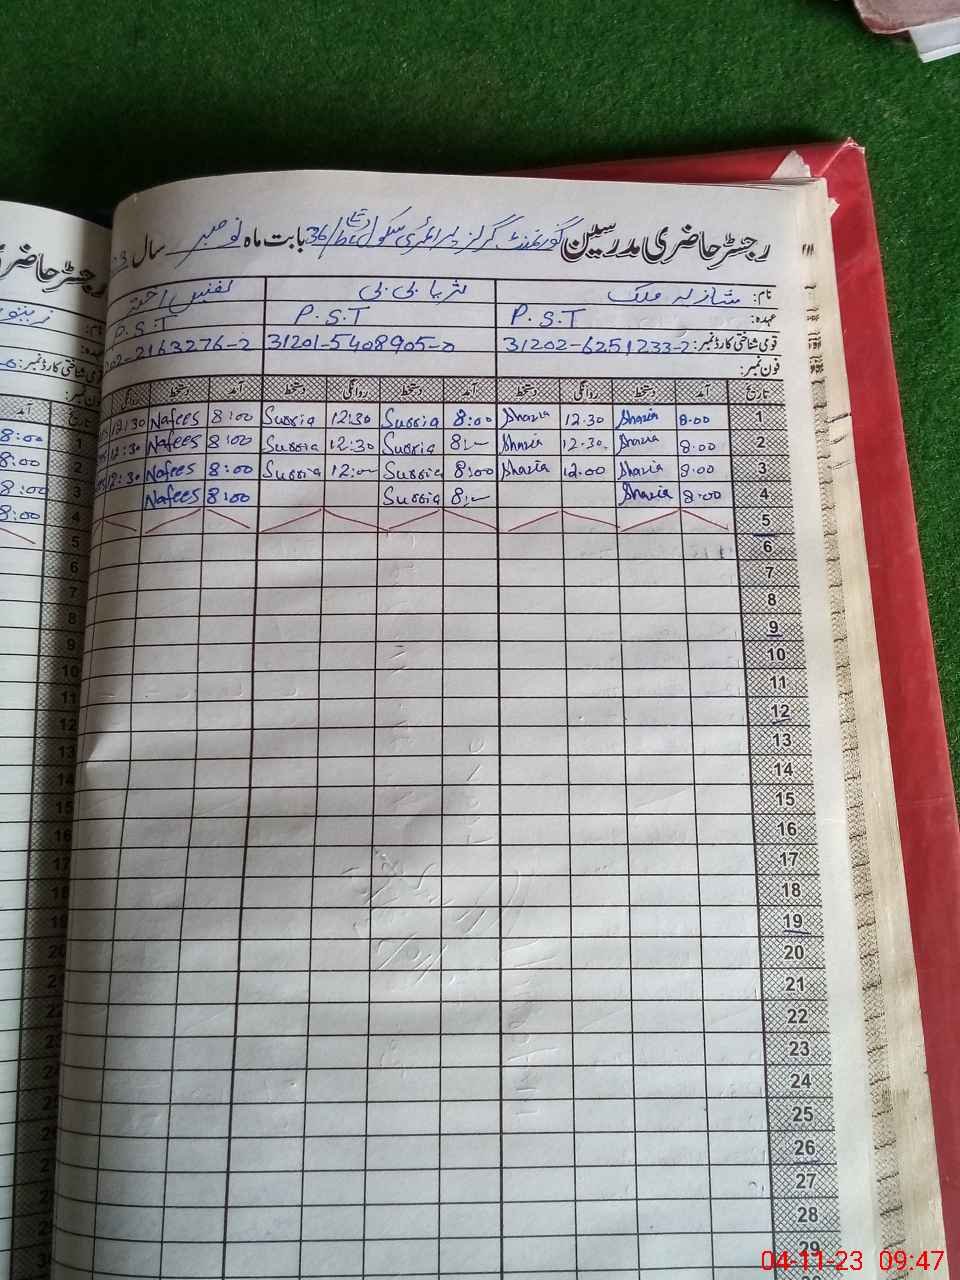 رجسٹر حاضری مدرسین گورنمنٹ گرلز پرائمری سکول 36/bc بابت ماہ نومبر سال
نام: شازیہ ملک ثریا بی بی نفیس اختر
عہدہ: P.S.T P.S.T P.S.T
قومی شناختی کارڈ نمبر: 31202-6251233-2 31201-5408905-0 202-2163276-2
فون نمبر:
تاریخ آمد دستخط روانگی دستخط آمد دستخط روانگی دستخط آمد دستخط روانگی
1 8.00 Shazia 12.30 Shazia 8:00 Surria 12:30 Surria 8:00 Nafees 12:30
2 8.00 Shazia 12.30 Shazia 8:- Surria 12:30 Surria 8:00 Nafees 12:30
3 8.00 Shazia 12.00 Shazia 8:00 Surria 12:- Surria 8:00 Nafees 12:30
4 8.00 Shazia 8:- Surria 8:00 Nafees
5
6
7
8
9
10
11
12
13
14
15
16
17
18
19
20
21
22
23
24
25
26
27
28
29
رجسٹر حاضری
نام:
عہدہ:
قومی شناختی کارڈ نمبر:
فون نمبر:
تاریخ آمد
1 8:00
2 8:00
3 8:00
4 8:00
5
6
7
8
9
10
11
12
13
14
15
16
17
18
19
04-11-23 09:47